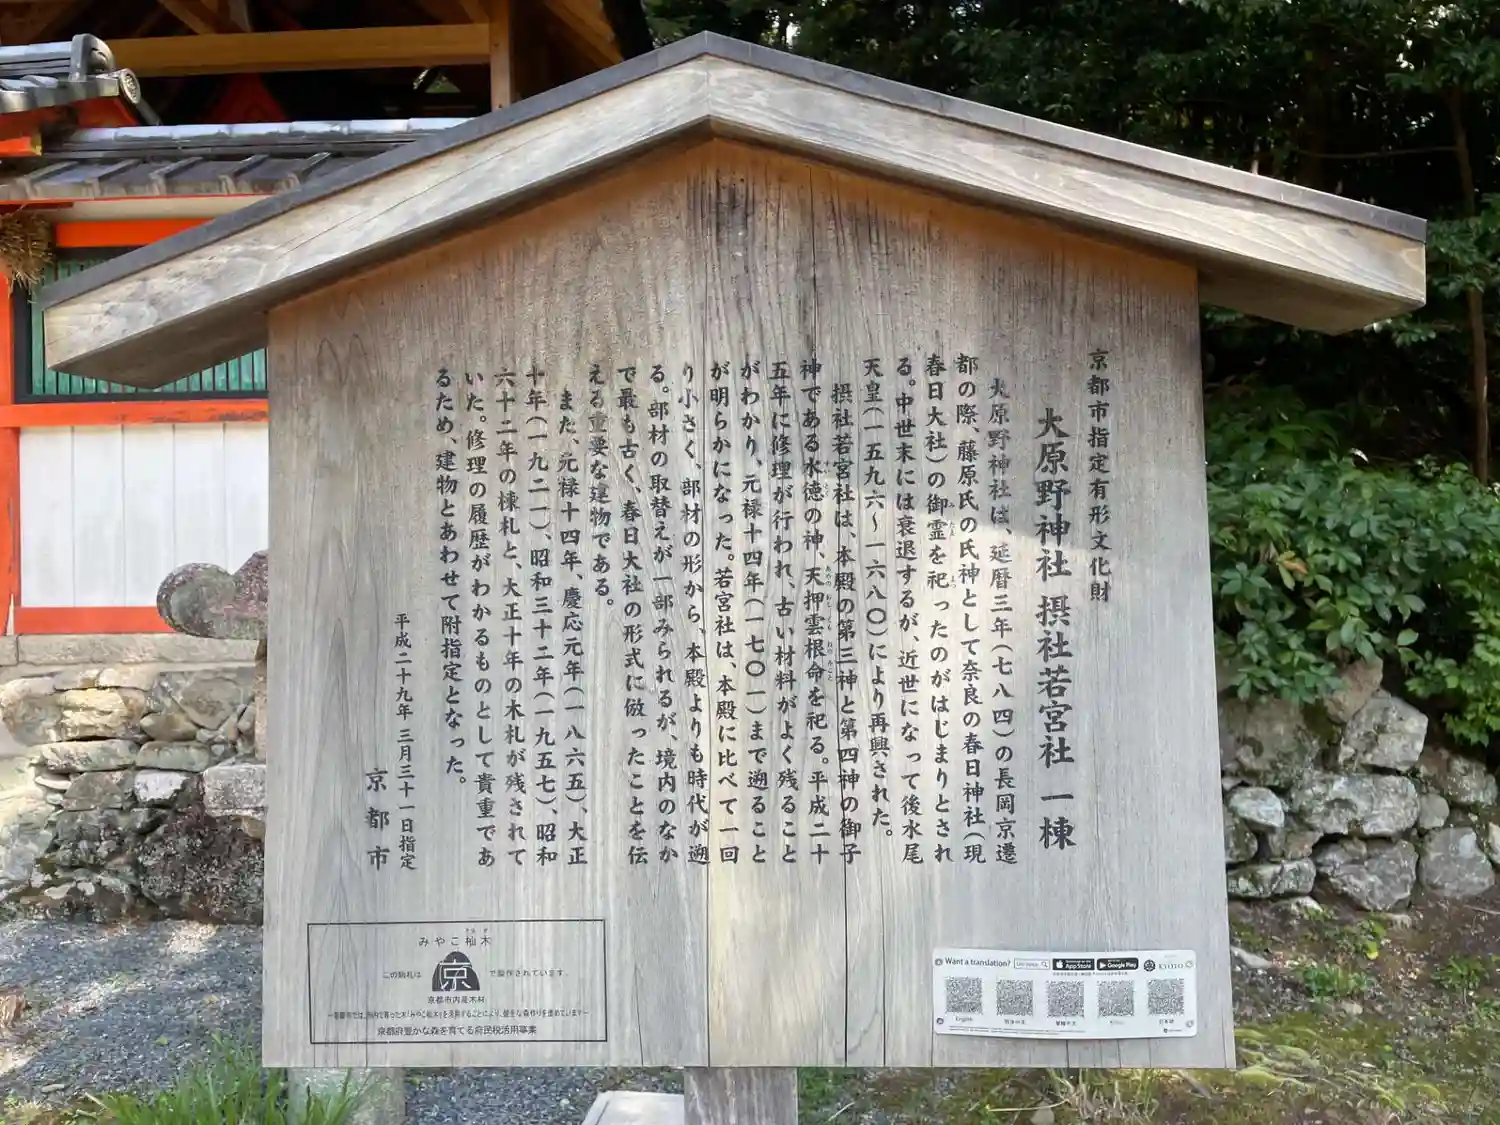 京都市指定有形文化財
大原野神社 摂社若宮社 一棟
大原野神社は、延暦三年(七八四)の長岡京遷
都の際、藤原氏の氏神として奈良の春日神社(現
春日大社)の御霊を祀ったのがはじまりとされ
る。中世末には衰退するが、近世になって後水尾
天皇(一五九六〜一六八〇)により再興された。
摂社若宮社は、本殿の第三神と第四神の御子
神である水徳の神、天押雲根命を祀る。平成二十
五年に修理が行われ、古い材料がよく残ること
がわかり、元禄十四年(一七〇一)まで遡ること
が明らかになった。若宮社は、本殿に比べて一回
り小さく、部材の形から、本殿よりも時代が遡
る。部材の取替えが一部みられるが、境内のなか
で最も古く、春日大社の形式に倣ったことを伝
える重要な建物である。
また、元禄十四年、慶応元年(一八六五)、大正
十年(一九二一)、昭和三十二年(一九五七)、昭和
六十二年の棟札と、大正十年の木札が残されて
いた。修理の履歴がわかるものとして貴重であ
るため、建物とあわせて附指定となった。
平成二十九年 三月三十一日指定
京都市
みやこ杣木
この駒札は
京
で製作されています。
京都市内産木材
京都府豊かな森を育てる府民税活用事業
Want a translation?
App Store
Google Play
KYOTO
English
简体中文
繁體中文
日本語